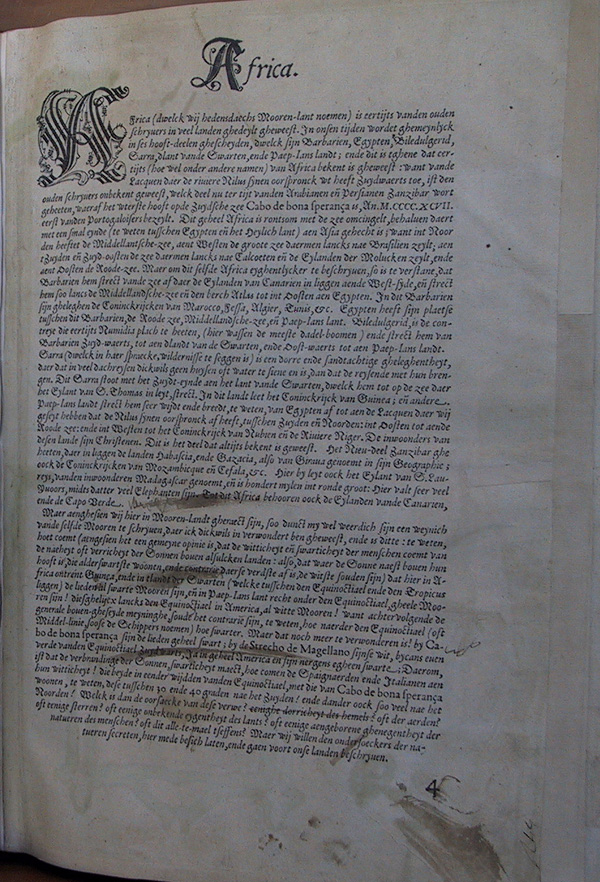 Africa.
AFrica (dwelck wij hedensdaechs Mooren-lant noemen) is eertijts vanden ouden
schryvers in veel landen ghedeylt gheweest. In onsen tijden wordet ghemeynlyck
in ses hooft-deelen ghescheyden, dwelck sijn Barbarien, Egypten, Biledulgerid,
Sarra, dlant vande Swarten, ende Paep-Jans landt; ende dit is tghene dat eer-
tijts (hoe wel onder andere namen) van Africa bekent is gheweest: want vande
Lacquen daer de riviere Nilus synen oorspronck wt heeft Zuydwaerts toe, ist den
ouden schryvers onbekent geweest, welck deel nu ter tijt vanden Arabianen en Persianen Zanzibar wort
geheeten, waeraf het wterste hooft opde Zuydzijde zee Cabo de bona sperança is, An. M.CCCC.XCVII.
eerst vanden Portogaloisers bezeylt. Dit geheel Africa is rontsom met de zee omcingelt, behalven daert
met een smal eynde (te weten tusschen Egypten en het Heylich lant) aen Asia gehecht is; want int Noor
den heeftet de Middellantsche-zee, aent Westen de groote zee daermen lancks nae Brasilien zeylt, aen
tZuyden en Zuyd-oosten de zee daermen lancks nae Calcoeten en de Eylanden der Molucken zeylt, ende
aent Oosten de Roode-zee. Maer om dit selfde Africa eyghentlycker te beschryven, so is te verstane, dat
Barbarien hem streckt vande zee af daer de Eylanden van Canarien in liggen aende West-syde, en streckt
hem soo lancs de Middellandsche-zee en den berch Atlas tot int Oosten aen Egypten. In dit Barbarien
sijn gheleghen de Coninckrijcken van Marocco, Fessa, Algier, Tunis, &c. Egypten heeft sijn plaetse
tusschen dit Barbarien, de Roode zee, Middellandsche-zee, en Paep-Jans lant. Biledulgerid, is de con-
treye die eertijts Numidia plach te heeten, (hier wassen de meeste dadel-boomen) ende streckt hem van
Barbarien Zuyd-waerts, tot aen dlandt van de Swarten, ende Oost-waerts tot aen Paep-Jans landt.
Sarra (dwelck in haer spraecke, wildernisse te seggen is) is een dorre ende sandtachtige gheleghentheyt,
daer dat in veel dachreysen dickwils geen huysen oft water te siene en is, dan dat de reysende met hun bren-
gen. Dit Sarra stoot met het Zuydt-eynde aen het lant vande Swarten, dwelck hem tot op de zee daer
het Eylant van S. Thomas in leyt, streckt. In dit landt leet het Coninckrijck van Guinea; en andere.
Paep-Jans landt streckt hem seer wijdt ende breedt, te weten, van Egypten af tot aen de Lacquen daer wij
geseyt hebben dat de Nilus synen oorspronck af heeft, tusschen Zuyden en Noorden: int Oosten tot aende
Roode zee: ende int Westen tot het Coninckrijck van Nubien en de Riviere Niger. De inwoonders van
desen lande sijn Christenen. Dit is het deel dat altijts bekent is geweest. Het Nieu-deel Zanzibar ghe
heeten, daer in liggen de landen Habascia, ende Gazacia, also van Giraua genoemt in sijn Geographie;
oock de Coninckrijcken van Mozambicque en Cefala, &c. Hier by leyt oock het Eylant van S. Lau-
reys, vanden inwoonderen Madagascar genoemt, en is hondert mylen int ronde groot: Hier valt seer veel
Yvoors, midts datter veel Elephanten sijn. Tot dit Africa behooren oock de Eylanden vande Canarien,
ende de Capo Verde.
Maer aenghesien wij hier in Mooren-landt gheraect sijn, soo dunct my wel weerdich sijn een weynich
vande selfde Mooren te schryven, daer ick dickwils in verwondert ben gheweest, ende is ditte: te weten,
hoet coemt (aengesien het een gemeyne opinie is, dat de witticheyt en swarticheyt der menschen coemt van
de naeheyt oft verricheyt der Sonnen boven alsulcken landen: also, dat waer de Sonne naest boven hun
hooft is, die alder swartste woonen, ende contrarie daerse verdste af is, de witste souden sijn) dat hier in A-
frica ontrent Guinea, ende in tlandt der Swarten (welcke tusschen den Equinoctiael ende den Tropicus
liggen) de lieden al swarte Mooren sijn, en in Paep-Jans lant recht onder den Equinoctiael, gheele Moo-
ren sijn? diesghelijcx lancks den Equinoctiael in America, al witte Mooren? want achtervolgende de
generale boven-gheseyde meyninghe, soude het contrarie sijn, te weten, hoe naerder den Equinoctiael (oft
Middel-linie, soose de Schippers noemen) hoe swarter. Maer dat noch meer te verwonderen is: by Ca-
bo de bona sperança sijn de lieden geheel swart; by de Strecho de Magellano sijnse wit, bycans even
verde vanden Equinoctiael Zuydwaert; Ja in geheel America en sijn nergens egheen swarte. Daerom,
ist dat de verbrandinge der Sonnen, swarticheyt maect, hoe comen de Spaignaerden ende Italianen aen
hun witticheyt? die beyde in eender wijdden vanden Equinoctiael, met die van Cabo de bona sperança
woonen, te weten, dese tusschen 30 ende 40 graden nae het Zuyden? ende dander oock soo veel nae het
Noorden? Welck is dan de oorsaecke van dese verwe? eenighe dorricheyt des hemels? oft der aerden?
oft eenige sterren? oft eenige onbekende eygentheyt des lants? oft eenige aengeborene ghenegentheyt der
natueren des menschen? oft dit alle-te-mael tseffens? Maer wij willen den ondersoeckers der na-
tueren secreten, hier mede besich laten, ende gaen voort onse landen beschryven.
4